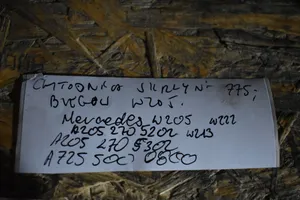 CHŁODNICA SKRZYNI 775,-
BIEGÓW W205.
Mercedes W205 W222
A205 270 5202 W213
A205 270 5302
A725 500 0800